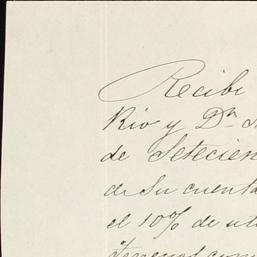 Recibi
Rio y Dn
de Setecien
de Su cuenta
el 10% de